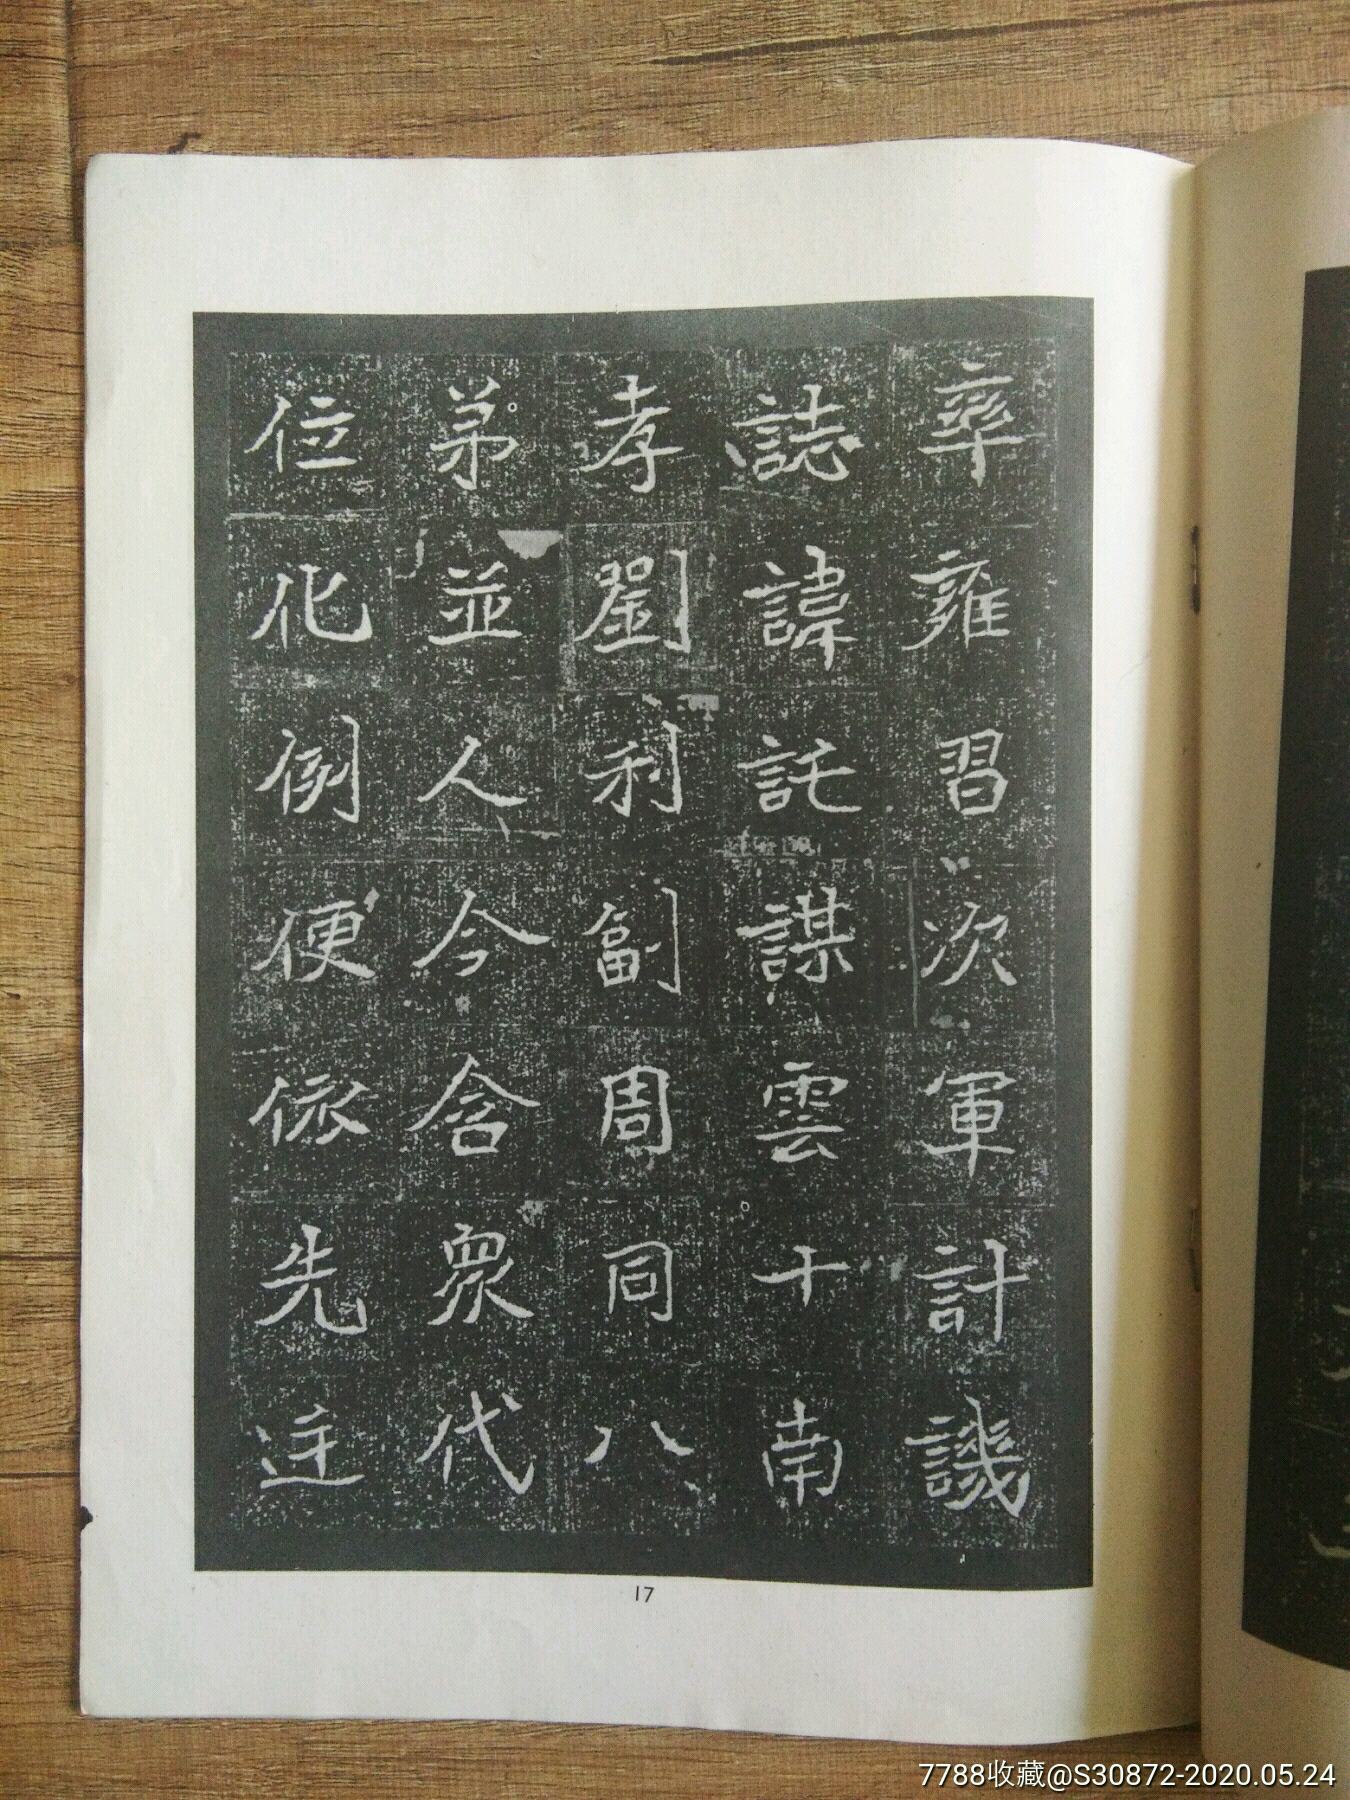 率雍習次軍計譏
誌諱託謀雲十南
孝劉利副周同八
弟並人今含眾代
位化例便依先迬
17
7788收藏@S30872-2020.05.24